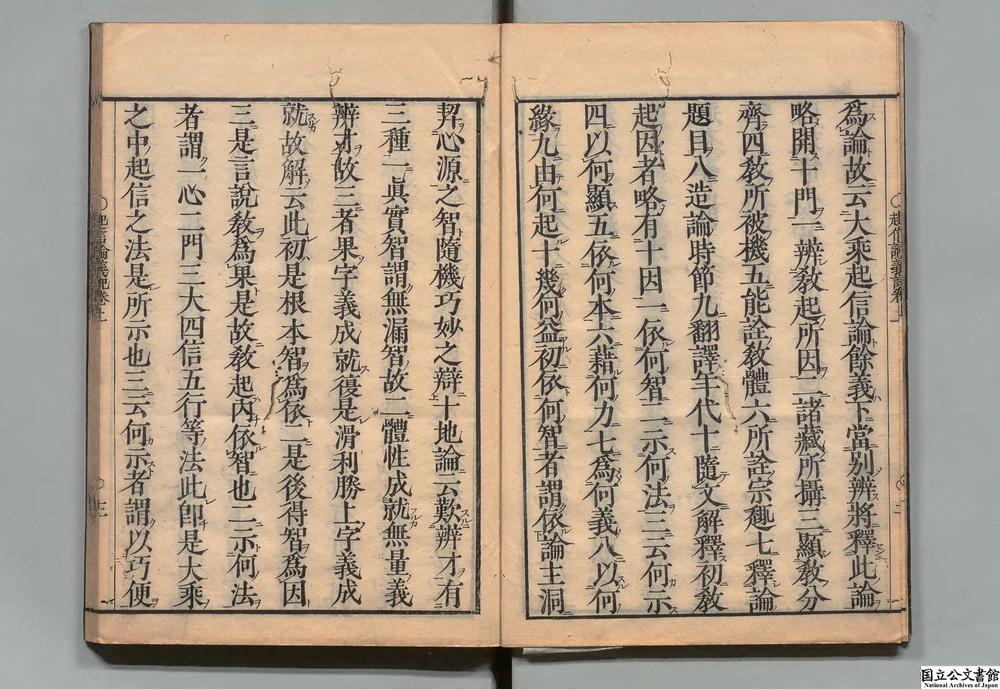 爲論故云大乘起信論餘義下當別辨將釋此論
略開十門一辨敎起所因二諸藏所攝三顯敎分
齊四敎所被機五能詮敎體六所詮宗趣七釋論
題目八造論時節九翻譯年代十隨文解釋初敎
起因者略有十因一依何智二示何法三云何示
四以何顯五依何本六藉何力七爲何義八以何
緣九由何起十幾何益初依何智者謂依論主洞
契心源之智隨機巧妙之辯十地論云歎辨才有
三種一眞實智謂無漏智故二體性成就無量義
辨才故三者果字義成就復是滑利勝上字義成
就故解云此初是根本智爲依二是後得智爲因
三是言說敎爲果是故敎起內依智也二示何法
者謂一心二門三大四信五行等法此卽是大乘
之中起信之法是所示也三云何示者謂以巧便
起信論義記卷上
二
起信論義記卷上
三
国立公文書館
National Archives of Japan